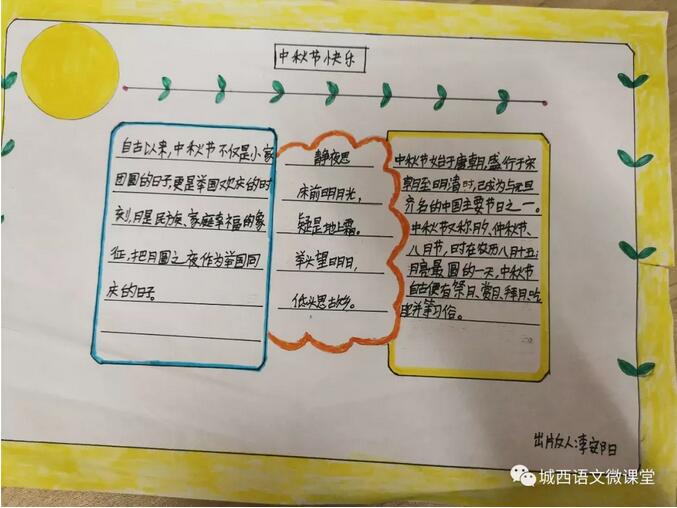 中秋节快乐
自古以来,中秋节不仅是小家
团圆的日子,更是举国欢庆的时
刻,月是民族、家庭幸福的象
征,把月圆之夜作为举国同
庆的日子。
静夜思
床前明月光,
疑是地上霜。
举头望明日,
低头思古乡。
中秋节始于唐朝,盛行于宋
朝至明清时,已成为与元旦
齐名的中国主要节日之一。
中秋节又称月夕、仲秋节、
八月节,时在农历八月十五;
月亮最圆的一天,中秋节
自古便有祭月、赏月、拜月、吃
月饼等习俗。
出版人:李安阳
城西语文微课堂